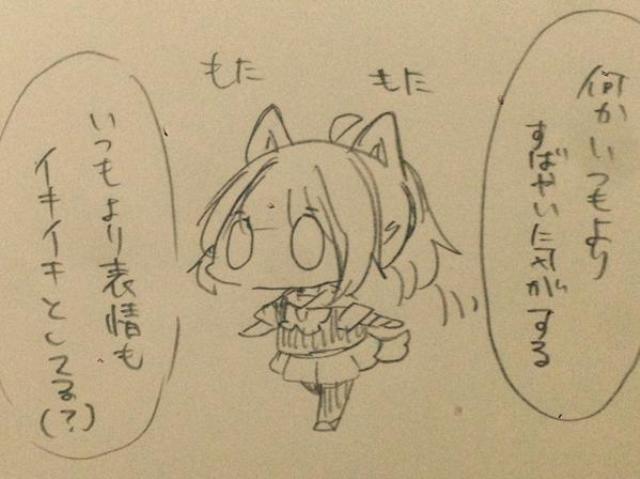 何かいつもより
すばやい気がする
もた
もた
いつもより表情も
イキイキとしてる
(?)